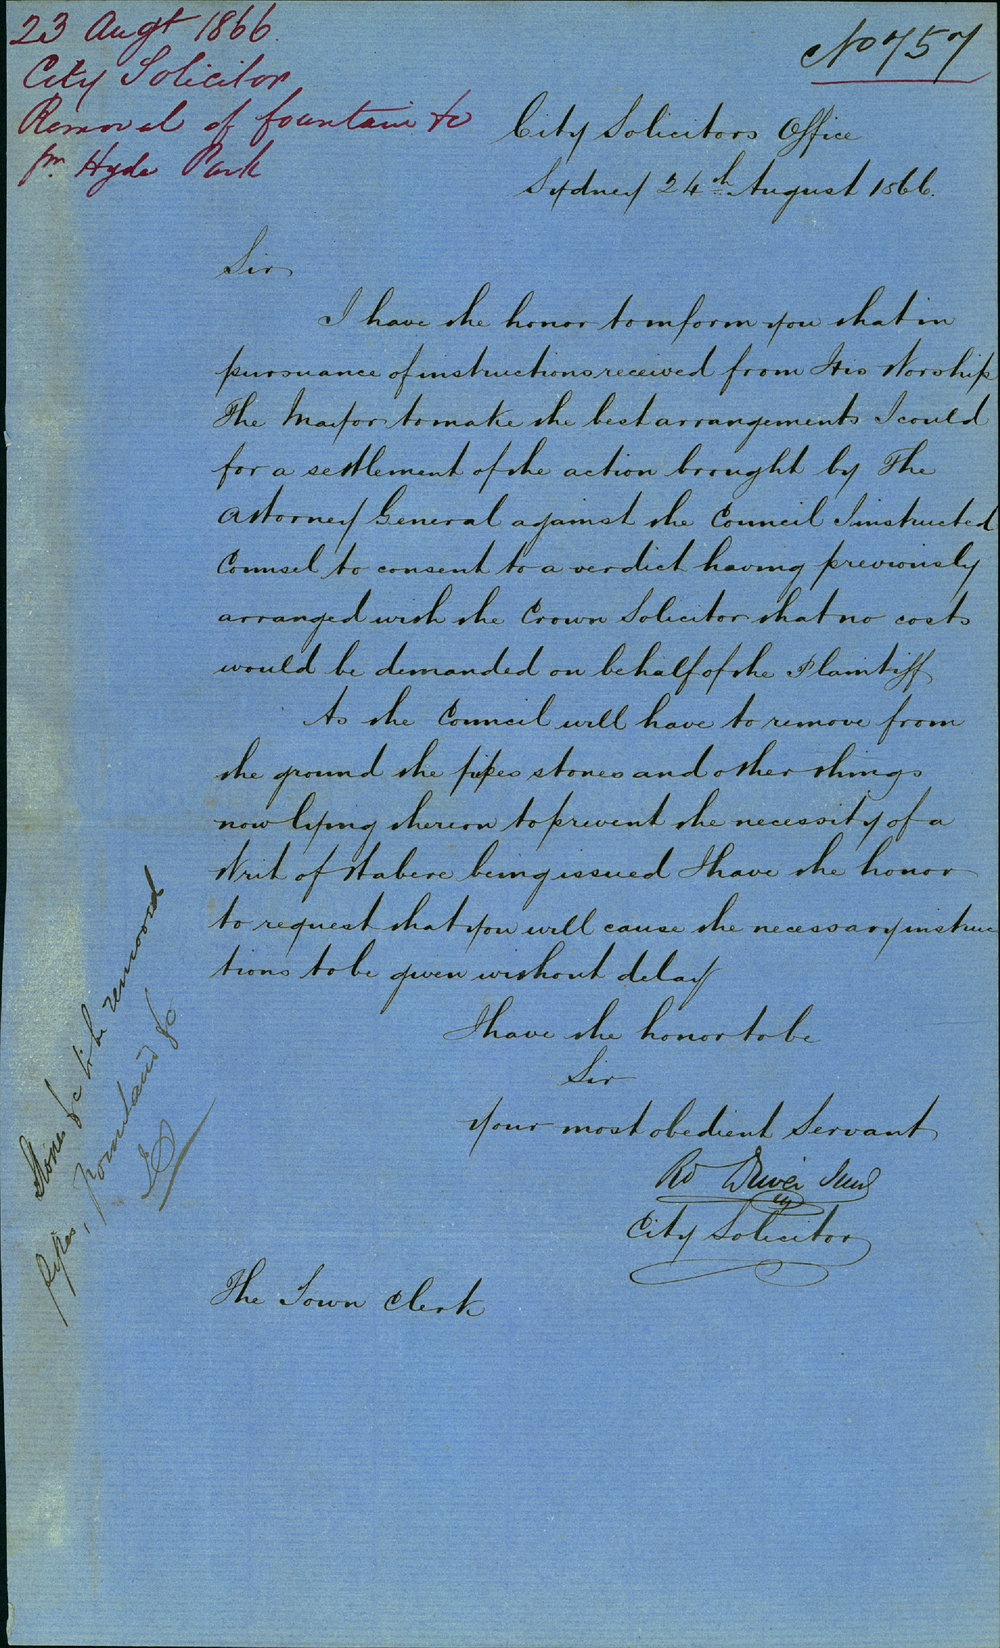 23 Augt 1866.
City Solicitor
Removal of fountain &c
fm. Hyde Park
No 757
City Solicitors Office
Sydney 24th August 1866.
Sir
I have the honor to inform you that in
pursuance of instructions received from His Worship
The Mayor to make the best arrangements I could
for a settlement of the action brought by The
Attorney General against the Council I instructed
Counsel to consent to a verdict having previously
arranged with the Crown Solicitor that no costs
would be demanded on behalf of the Plaintiff
As the Council will have to remove from
the ground the pipes stones and other things
now lying thereon to prevent the necessity of a
Writ of Habere being issued I have the honor
to request that you will cause the necessary instruc
tions to be given without delay
I have the honor to be
Sir
Your most obedient Servant
Rd Driver Junr
City Solicitor
The Town Clerk
Stones &c to be removed
pipes, fountain &c